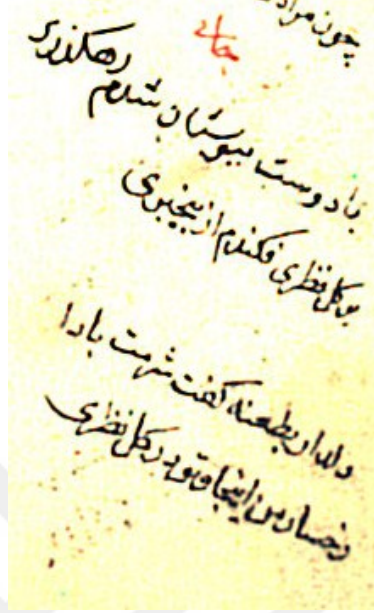 چون مراد
جامی
بادوست ببوستان شدم رهکذری
بر کل نظری فکندم از بیخبری
دلدار بطعنه کفت شرمت بادا
رخسار من اینجا و تو بر کل نظری